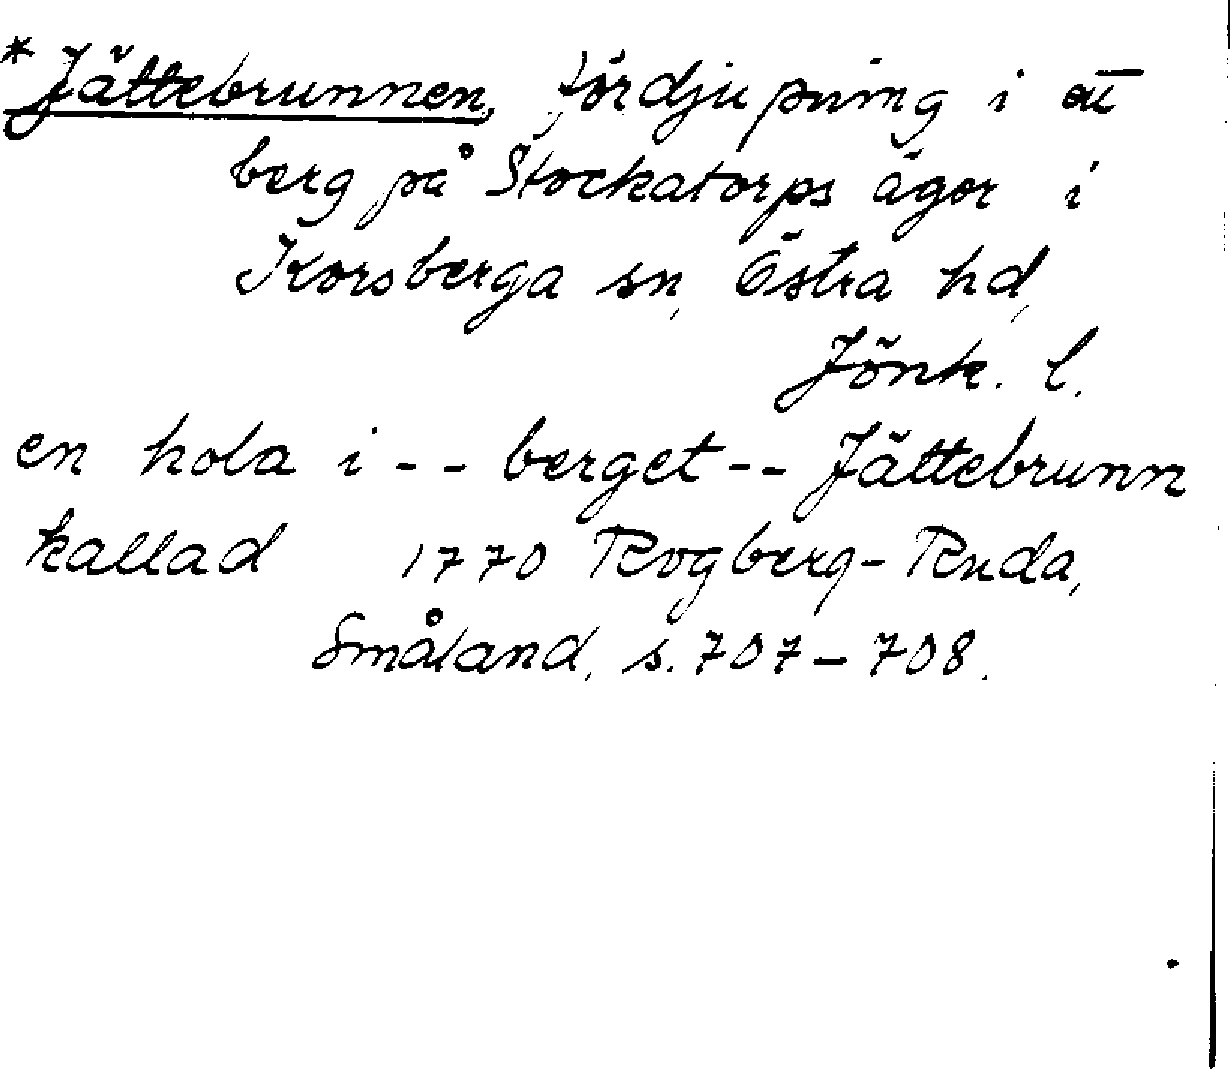 * Jättebrunnen, fördjupning i ett
berg på Stockatorps ägor i
Korsberga sn, Östra hd,
Jönk. l.
en hola i - - berget - - Jättebrunn
kallad 1770 Rogberg-Ruda,
Småland, s. 707-708.